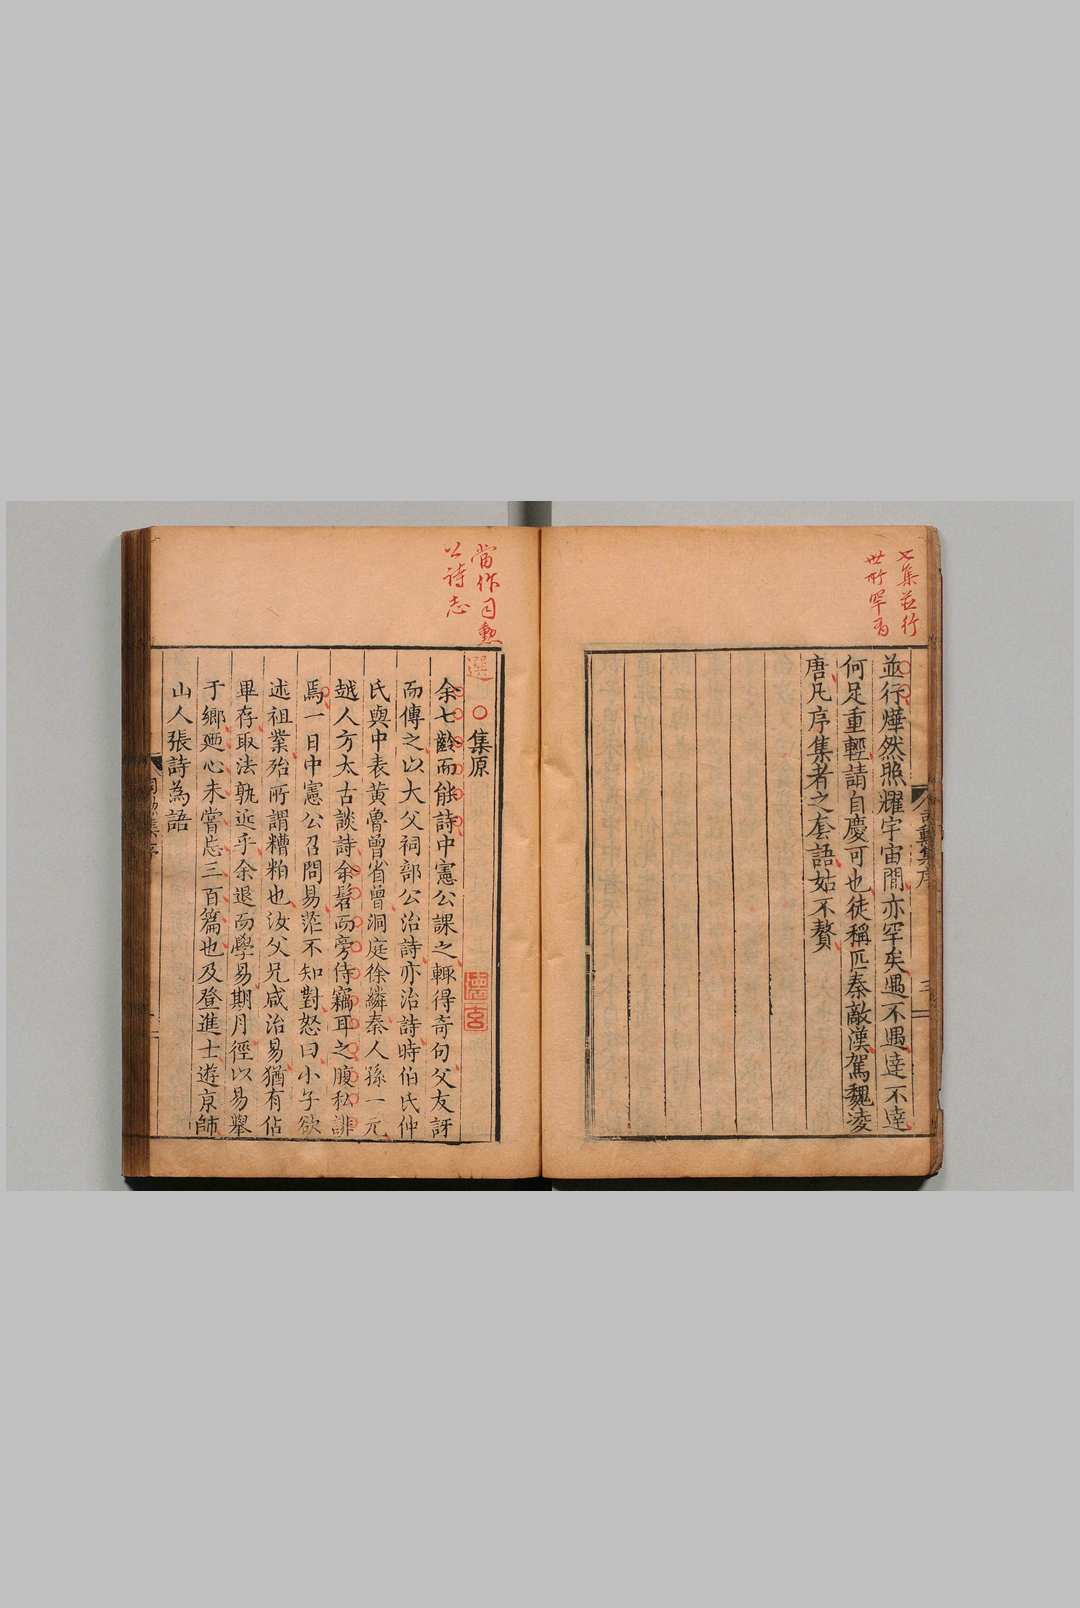 七集並行
世所罕有
並行燁然照耀宇宙間亦罕矣遇不遇達不達
何足重輕請自慶可也徒稱匹秦敵漢駕魏凌
唐凡序集者之套語姑不贅
當作司勲
公詩志
選
集原
余七齡而能詩中憲公課之輒得奇句父友訝
而傳之以大父祠部公治詩亦治詩時伯氏仲
氏與中表黃魯曾省曾洞庭徐縉秦人孫一元
越人方太古談詩余髫而旁侍竊耳之腹私誹
焉一日中憲公召問易茫不知對怒曰小子欲
述祖業殆所謂糟粕也汝父兄咸治易猶有佔
畢存取法孰近乎余退而學易期月徑以易舉
于鄉廼心未嘗忘三百篇也及登進士遊京師
山人張詩為語